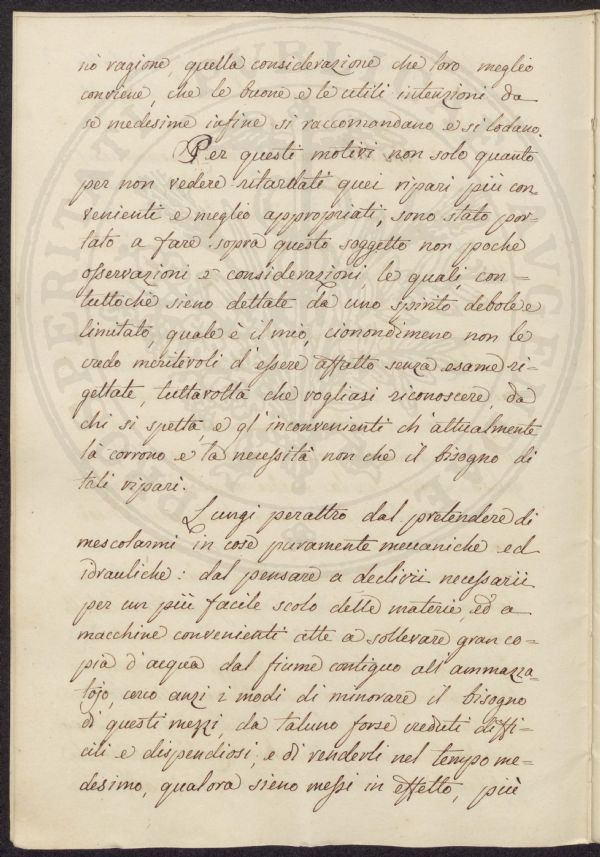 nò ragione, quella considerazione che loro meglio
conviene, che le buone e le utili intenzioni da
se medesime infine si raccomandano e si lodano.
Per questi motivi non solo quanto
per non vedere ritardati quei ripari più con
venienti e meglio appropriati, sono stato por-
tato a fare sopra questo soggetto non poche
osservazioni e considerazioni, le quali, con-
tuttochè sieno dettate da uno spirito debole e
limitato, quale è il mio, ciononodimeno non le
credo meritevoli d'essere affatto senza esame ri-
gettate, tuttavolta che vogliasi riconoscere, da
chi si spetta, e gl'inconvenienti ch'attualmente
là corrono e la necessità non che il bisogno di
tali ripari.
Lungi peraltro dal pretendere di
mescolarmi in cose puramente meccaniche ed
idrauliche: dal pensare a declivii necessarii
per un più facile scolo delle materie, ed a
macchine convenienti atte a sollevare gran co=
pia d'acqua dal fiume contiguo all'ammazza-
tojo, cerco anzi i modi di minorare il bisogno
di questi mezzi, da taluno forse creduti diffi-
cili e dispendiosi, e di renderli nel tempo me=
desimo, qualora sieno messi in effetto, più